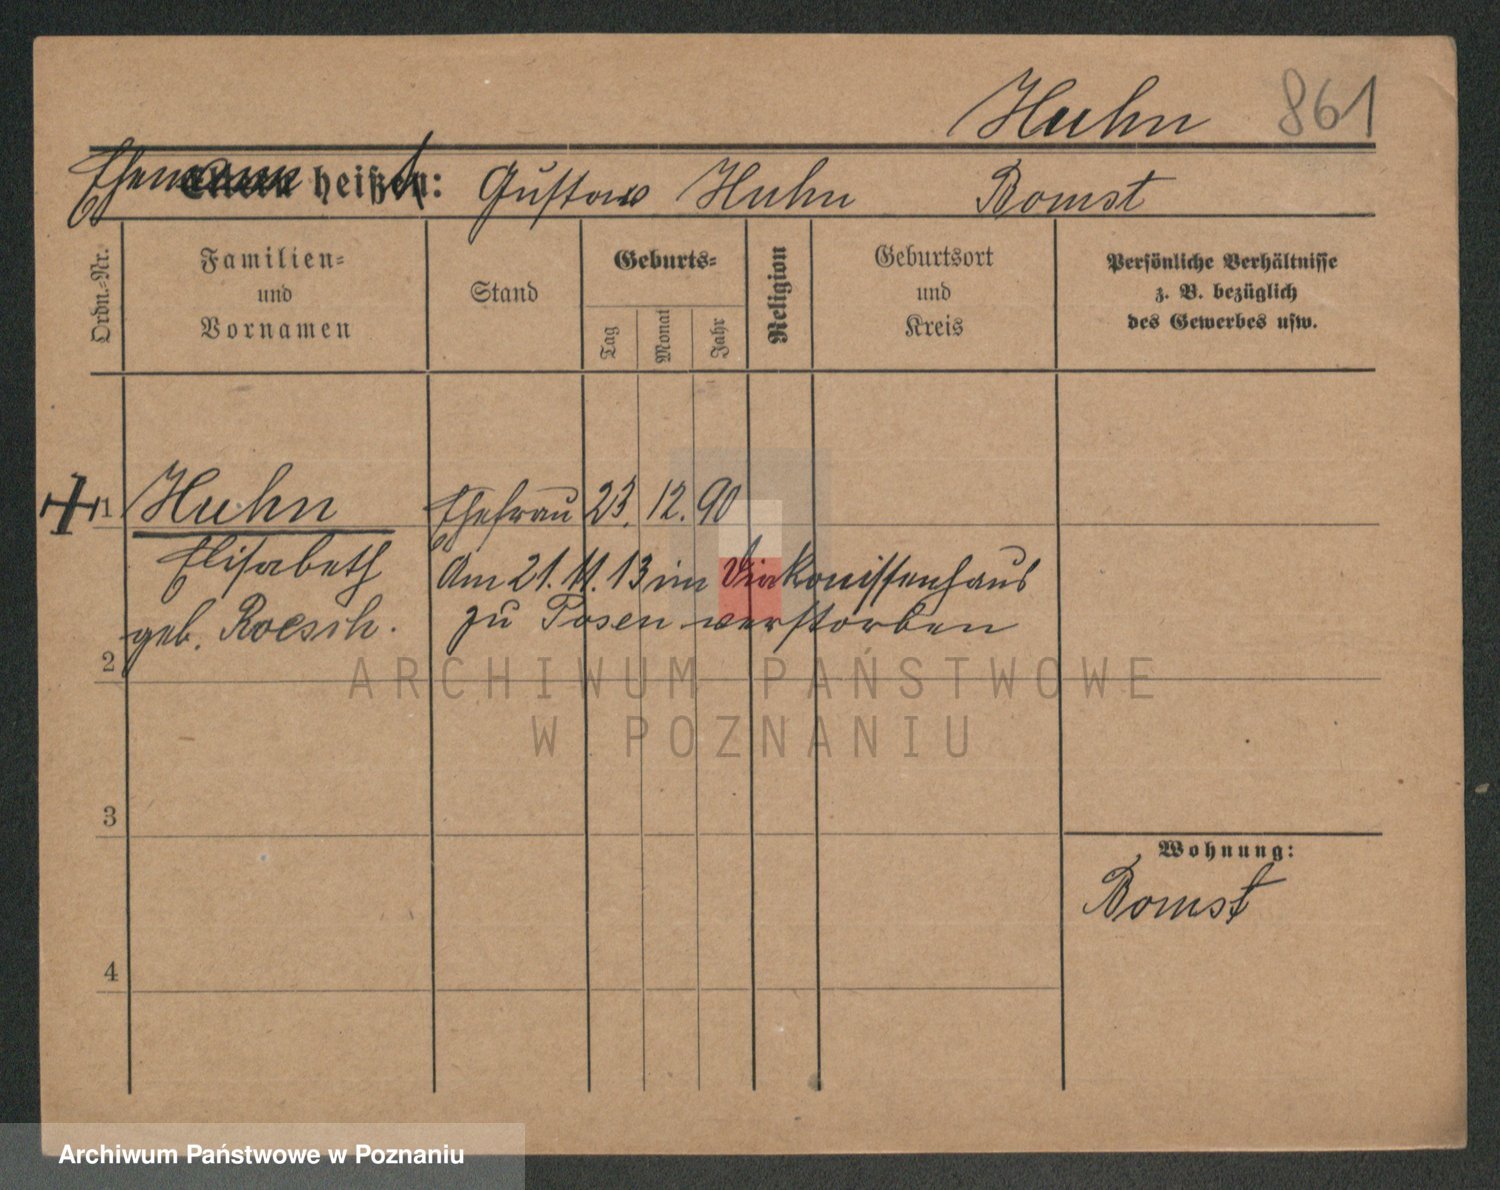 Huhn 861
Ehemann heißt: Gustav Huhn Bomst
Ordn.-Nr.
Familien-
und
Vornamen
Stand
Geburts-
Tag
Monat
Jahr
Religion
Geburtsort
und
Kreis
Persönliche Verhältnisse
z. B. bezüglich
des Gewerbes usw.
1 Huhn Ehefrau 23. 12. 90
Elisabeth Am 21. 11. 13 im Diakonissenhaus
geb. Roesch. zu Posen verstorben
2
ARCHIWUM PAŃSTWOWE
W POZNANIU
3
Wohnung:
Bomst
4
Archiwum Państwowe w Poznaniu